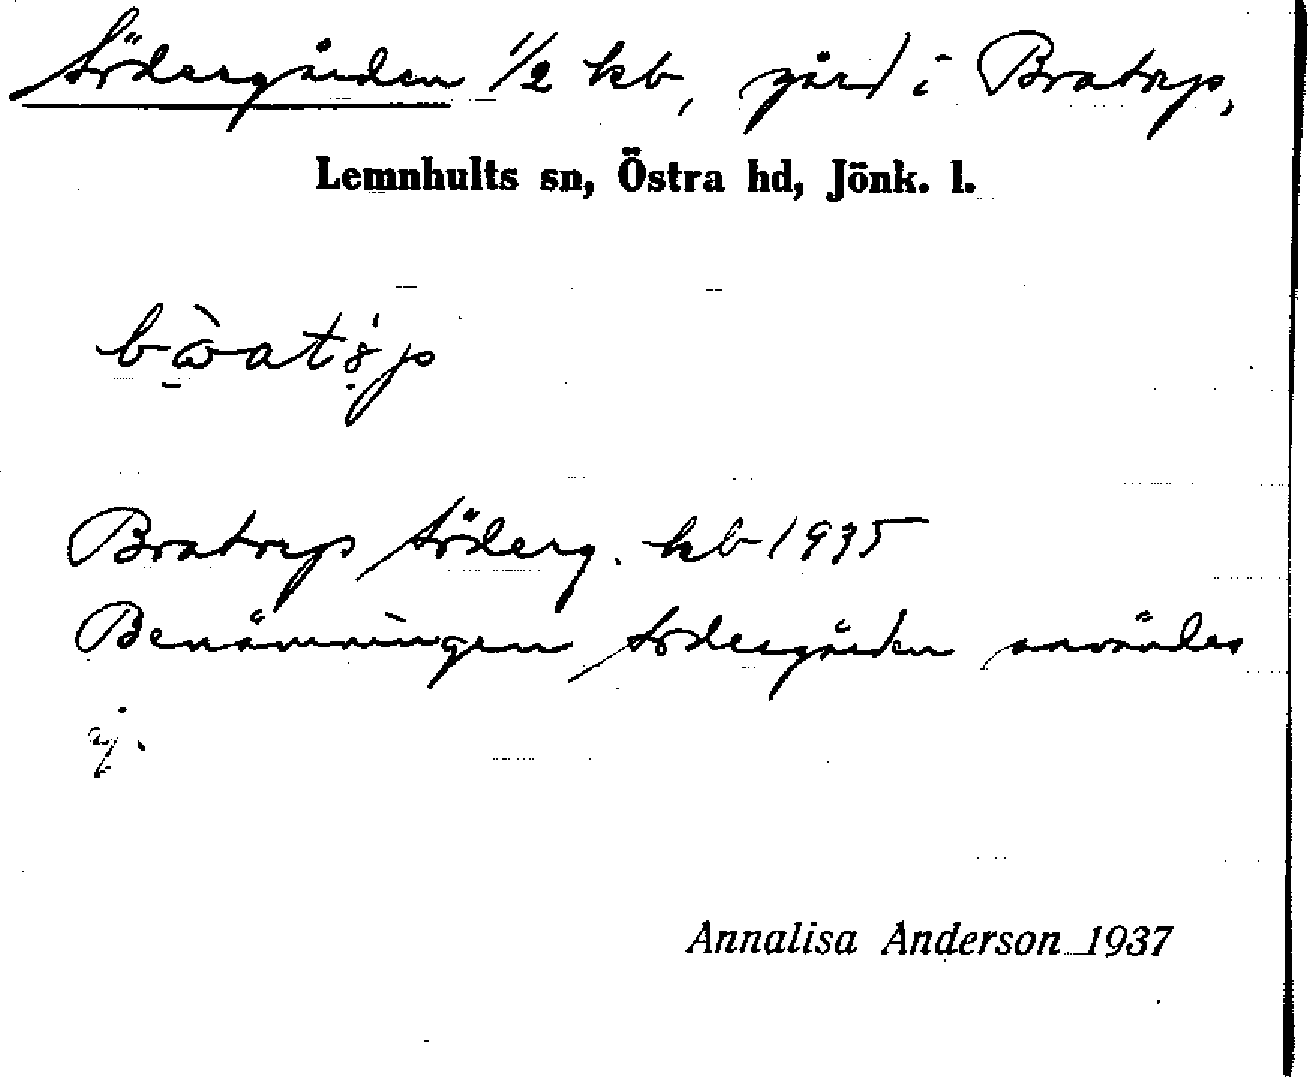 Södergården 1/2 kb, gård i Bratorp,
Lemnhults sn, Östra hd, Jönk. l.
Bratorps Söderg. kb 1935
Benämningen Södergården användes
ej.
Annalisa Anderson 1937